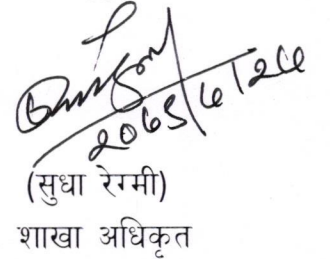 2065/6/26
(सुधा रेग्मी)
शाखा अधिकृत